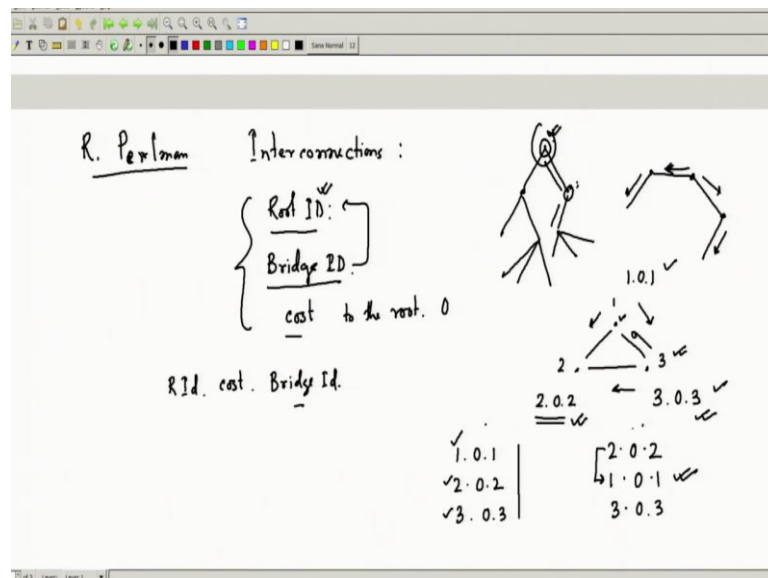 Sans Normal 12
R. Perlman Interconnections :
Root ID:
Bridge ID.
cost to the root. 0
RId. cost. Bridge Id.
1.0.1
1
2 . . 3
2.0.2 3.0.3
1.0.1 2.0.2
2.0.2 1.0.1
3.0.3 3.0.3